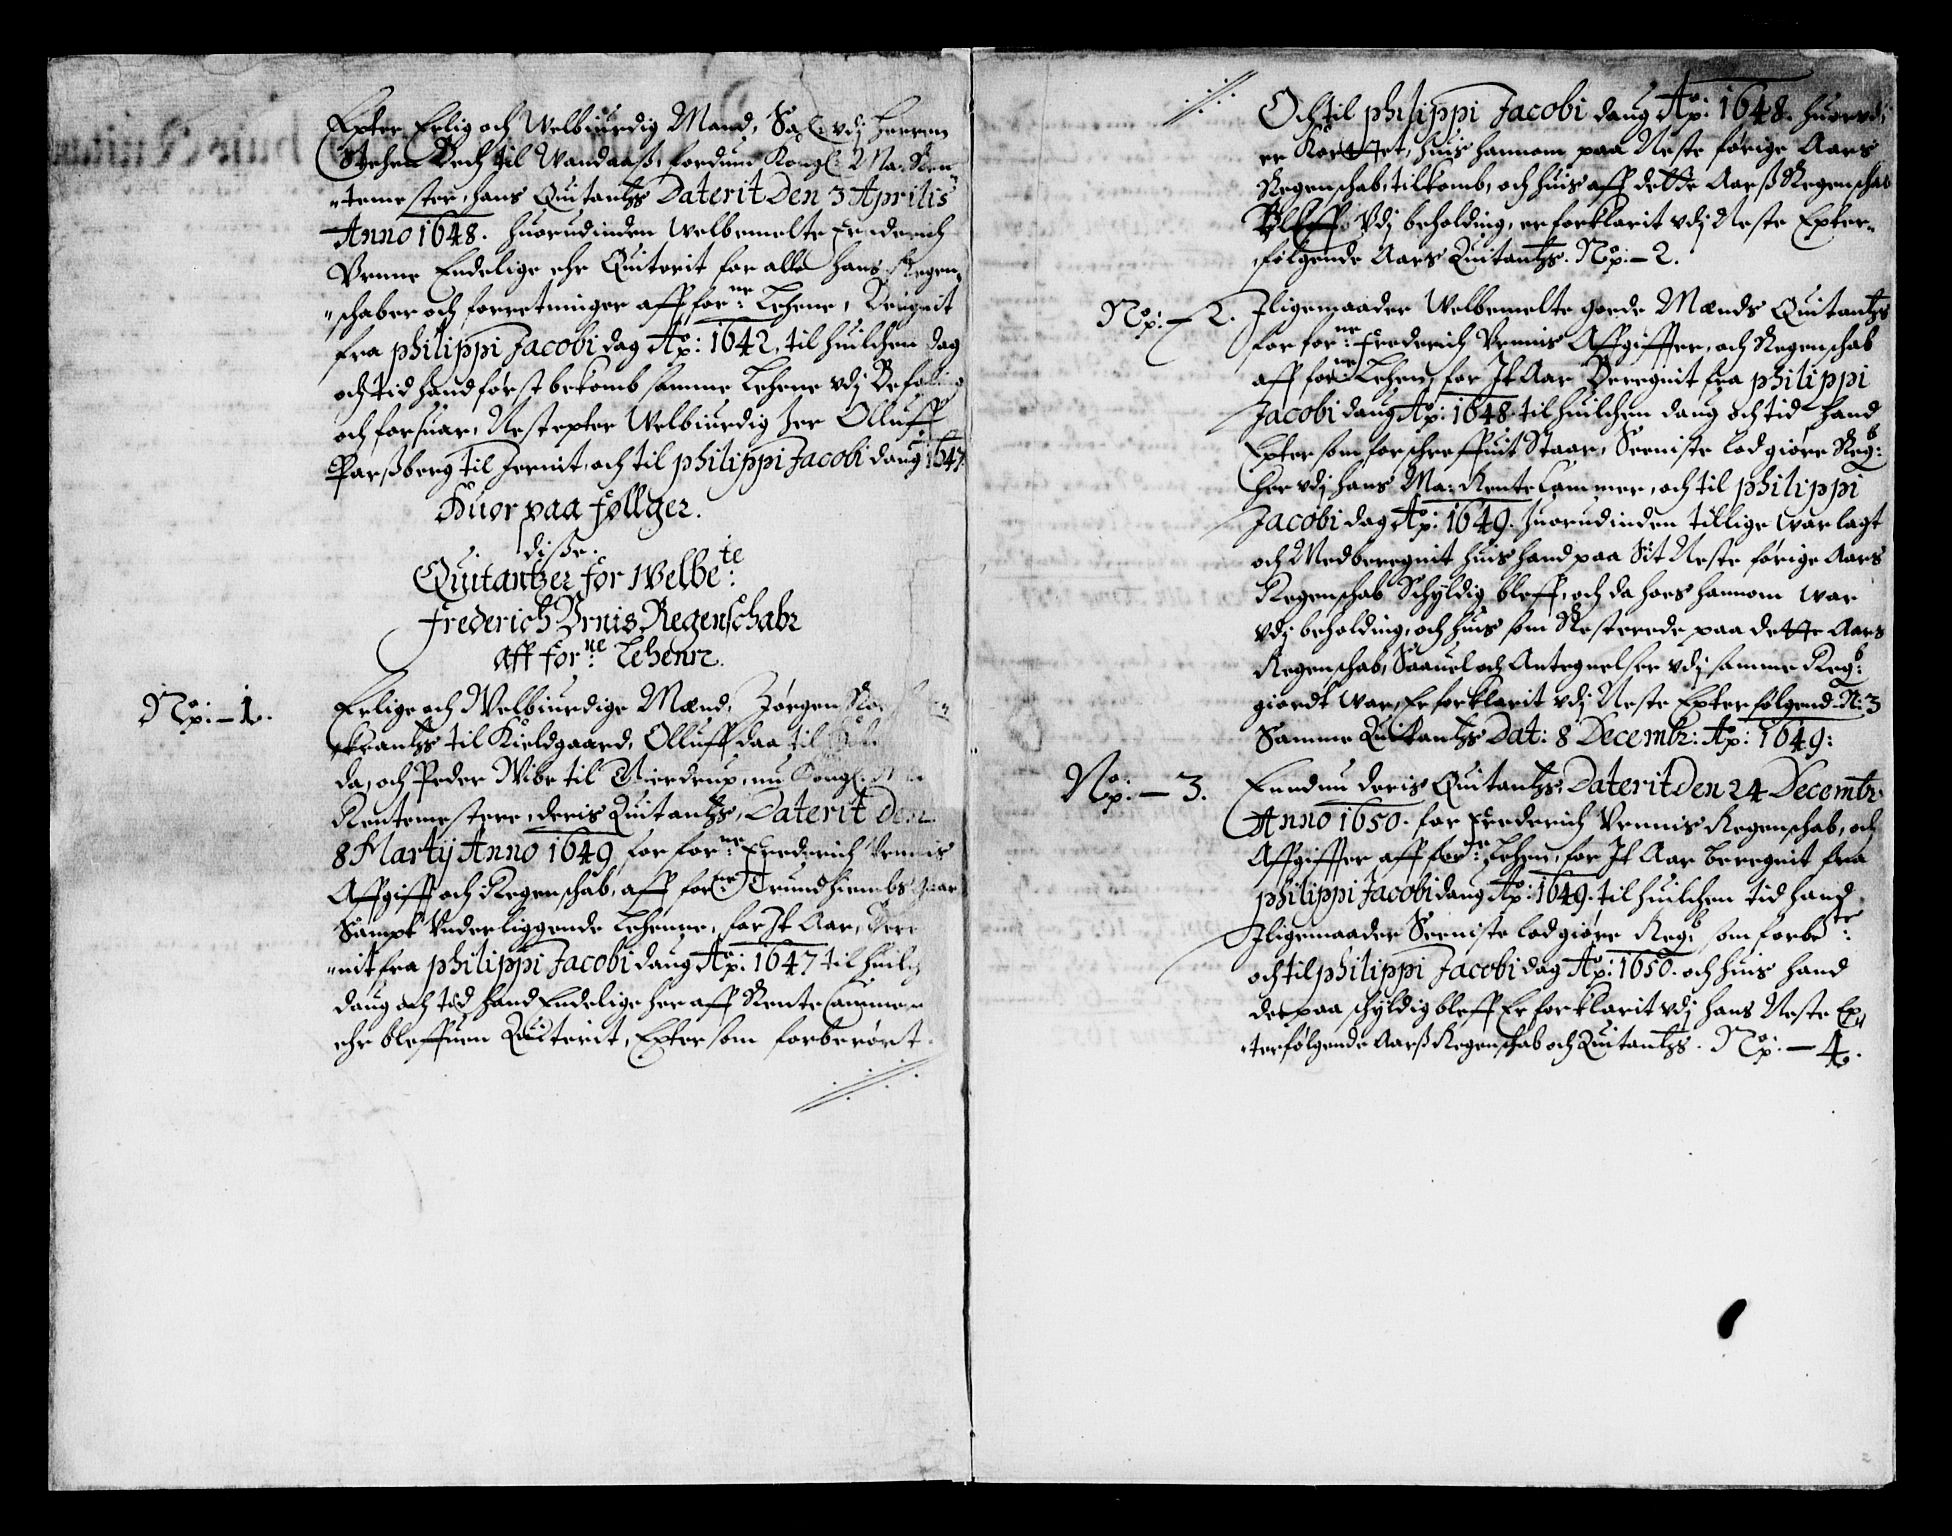 Epter Erlig och Welbiurdig Mand, Sal: vdj Herren
Stehen Bech til Wandaaß, fordum Kongl: Ma: Ren„
„temester, hans Quitantzs Daterit Den 3 Aprilis
Anno 1648. Huorudinden Welbemelte Frederich
Vrnne Endelige ehr Quiterit for alle hans Regen„
„schaber och forretninger aff for:ne Lehene, Beregnit
fra Philippi Jacobi dag Ao: 1642, til huilchen dag
och tid hand først bekomb samme Lehene vdj Befaling
och forsuar, Nest epter Welbiurdig Her Olluff
Parßberg til Jernit, och til Philippi Jacobi daug 1647
Huor paa føllger.
diße.
Quitantzer for Welbe:te
Frederich Vrnis Regenschaber
aff for:ne Lehener.
No: 1. Erlige och Welbiurdige Mænd, Jørgen
„krantzs til Kieldgaard, Olluff Daa til
da, och Peder Wibe til Gierdrup, nu Kongl:
Rentemestere, deris Quitantzs, Daterit Den
8 Martij Anno 1649, for for:ne Frederich Vrnnis
Affgifft och Regenschab, aff for:ne Trundhiembs gaar
Sampt Vnderliggende Lehenne, for It Aar, Bere
„nit fra Philippi Jacobi daug Ao: 1647 til huilch
daug och tid hand Endelige her aff Rente Cammer
ehr bleffuen Quiterit, Epter som forberørt.
Och til Philippi Jacobi daug Ao: 1648. Huorvdj
er Kortet, huis hannom paa Neste førige Aars
Regenschab, tilkomb, och huis aff dette Aarß Regenschab
Bleff Vdj beholding, er forklarit vdj Neste Epter„
følgende Aars Quitantzs. No: 2.
No: 2. Jligemaader Welbemelte gode Mænds Quitantzs
for for:ne Frederich Vrnnis Affgiffter, och Regenschab
aff for:ne Lehen, for It Aar Beregnit fra Philippi
Jacobi daug Ao: 1648 til huilchen daug och tid hand
Epter som forschreffuit Staar, Seeniste lod giøre Regb:
her vdj hans Ma: Rente Cammer, och til Philippi
Jacobi dag Ao: 1649. Huorudinden tillige war lagt
och Medberegnit huis hand paa Sit Neste førige Aars
Regenschab Schyldig bleff, och da hoes hannom war
vdj beholding, och huis som Resterede paa dette Aars
Regenschab, Saauel och Antegnelser vdj samme Regb:
giordt war, Er forklarit vdj Neste Epterfølgend No: 3
Samme Quitantzs Dat: 8 Decembr: Ao: 1649:
No: 3. Enndnu deris Quitantzs, Daterit Den 24 Decembr:
Anno 1650. for Frederich Vrnnis Regenschab, och
Affgiffter aff for:ne Lehen, for It Aar beregnit fra
Philippi Jacobi daug Ao: 1649. til huilchen tid hand
Jligemaader Seeniste lod giøre Regb: som forbe:te
och til Philippi Jacobi dag Ao: 1650. och huis hand
der paa schyldig bleff Er forklarit vdj hans Neste Ep„
„terfølgende Aarß Regenschab och Quitantzs. No: 4.